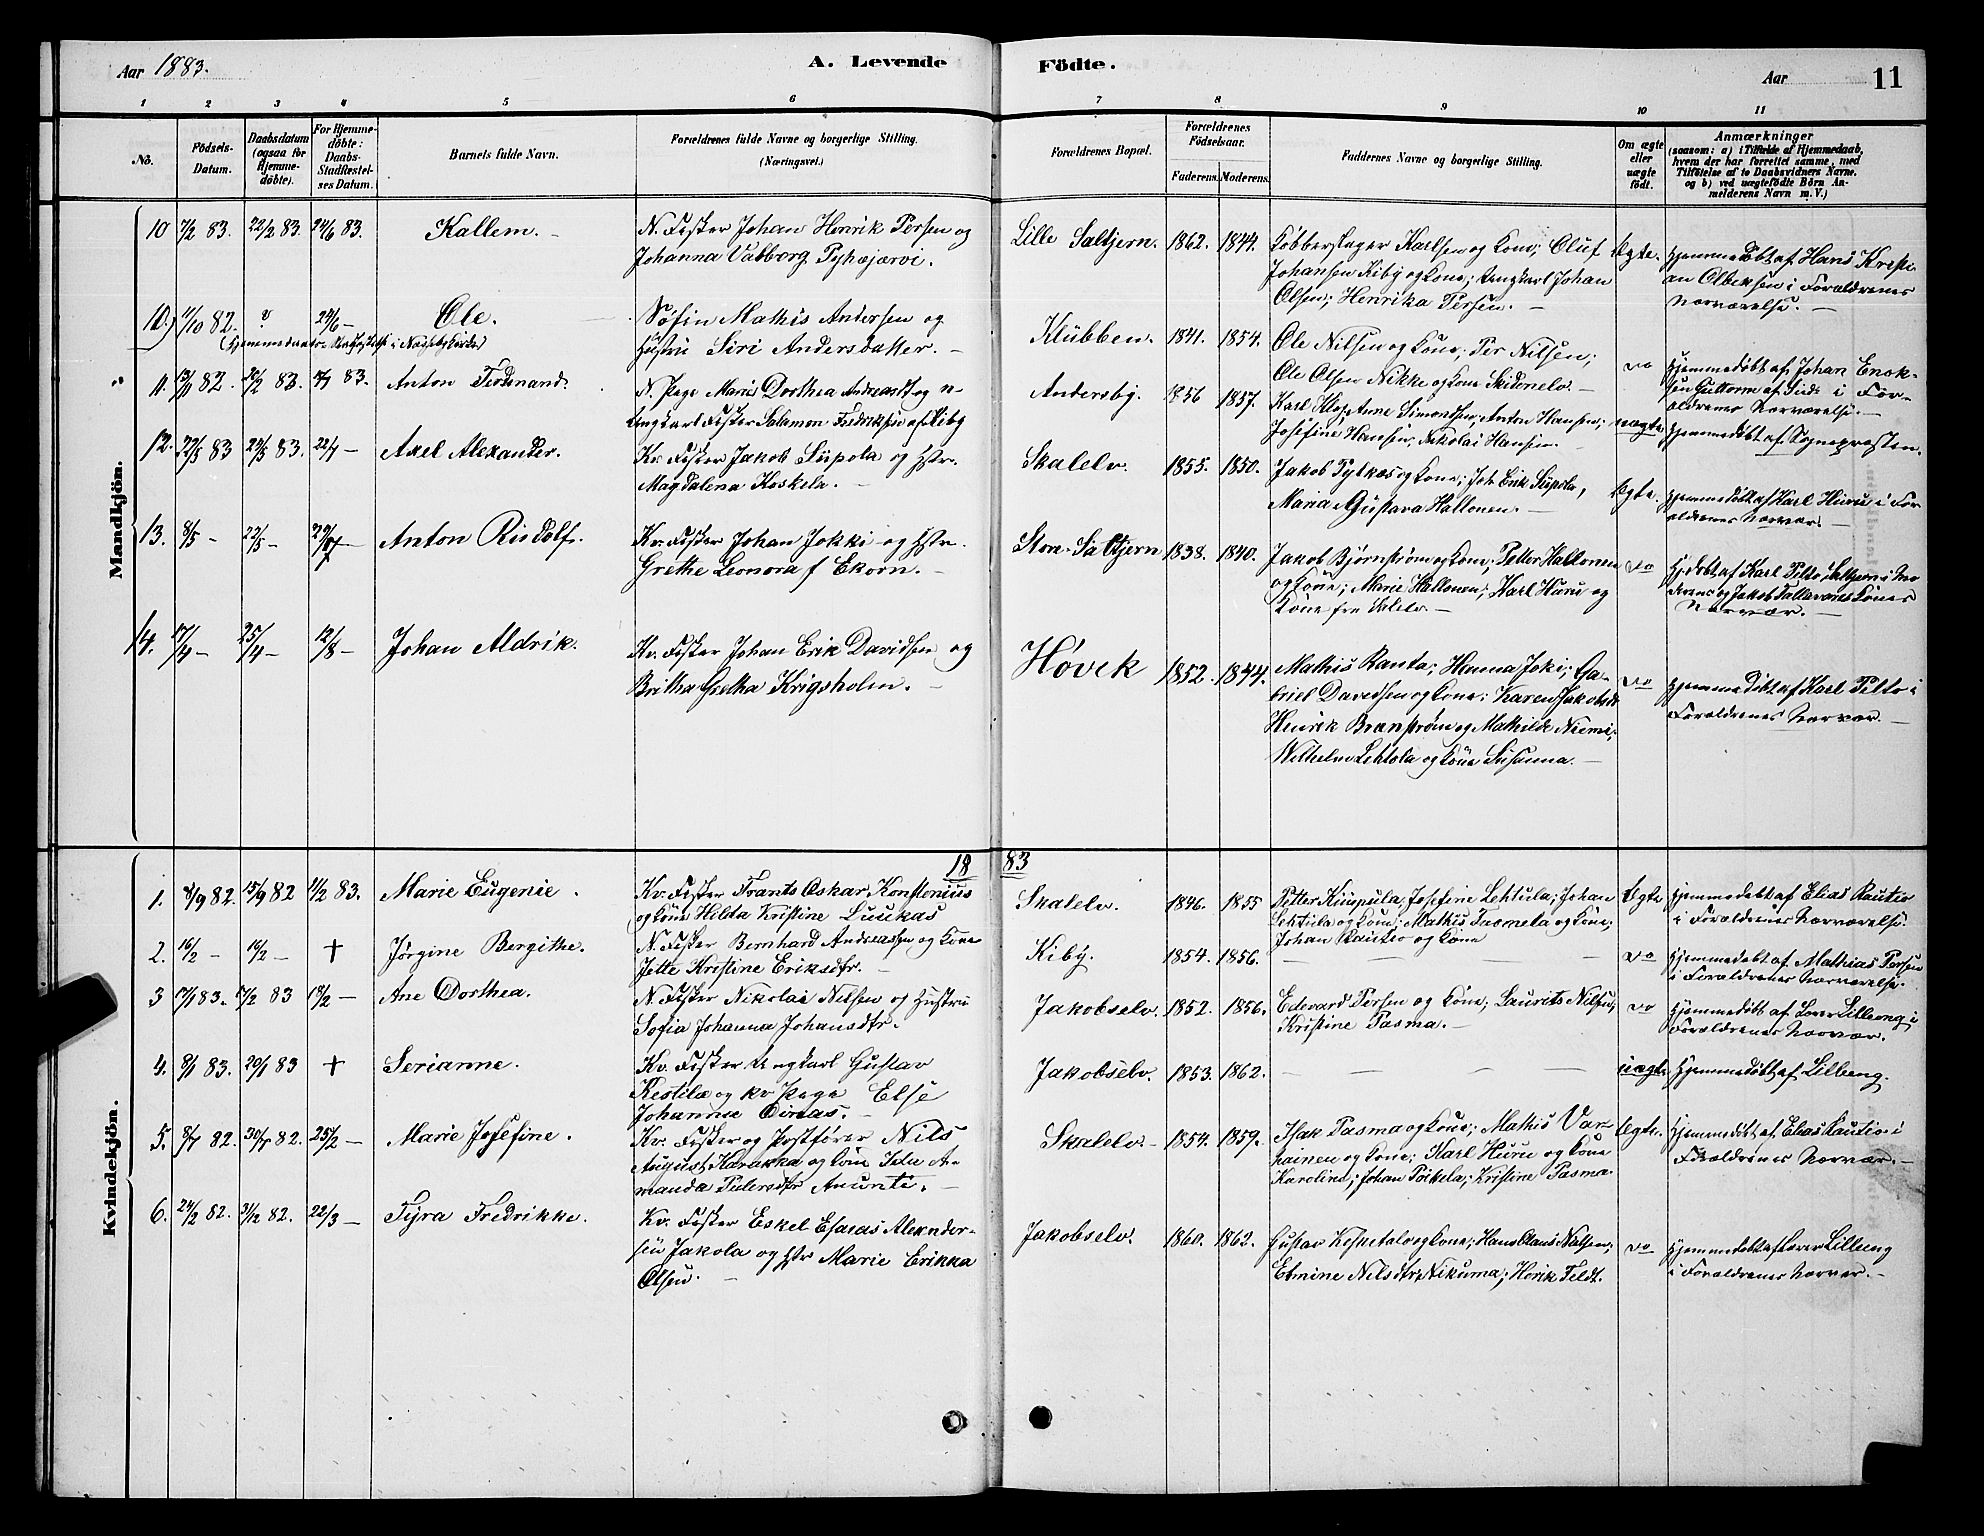 Aar 1883.
A. Levende Födte.
Aar
11
1 2 3 4 5 6 7 8 9 10 11
No.
Födsels-Datum.
Daabsdatum (ogsaa for Hjemme-döbte).
For Hjemme-döbte: Daabs-Stadfæstel-ses Datum.
Barnets fulde Navn.
Forældrenes fulde Navne og borgerlige Stilling. (Næringsvei.)
Forældrenes Bopæl.
Forældrenes Födselsaar.
Faderens. Moderens.
Faddernes Navne og borgerlige Stilling.
Om ægte eller uægte födt.
Anmærkninger
(saasom: a) i Tilfælde af Hjemmedaab,
hvem der har forrettet samme, med
Tilföielse af to Daabsvidners Navne.
og b) ved uægtefödte Börn An-
melderens Navn m. V.)
Mandkjön.
10 7/2 83. 22/2 83. 24/6 83. Kallem. —
N. Fisker Johan Henrik Persen og
Johanna Valborg Pyhæjærvi.
Lille Saltjern. 1862. 1844.
Kobberslager Karlsen og Kone; Oluf
Johansen Kiby og Kone; Ungkarl Johan
Olsen; Henrika Persen. —
Ægte.
Hjemmedöbt af Hans Kristi-
an Olbersen i Forældrenes
Nærværelse. —
10.) 11/10 82. ? 24/6 — Ole.
Søfin Mathis Andersen og
Hustru Siri Andersdatter. —
Klubben. 1841. 1854.
Ole Nilsen og Kone; Per Nilsen;
Ole Olsen Nikke og Kone Skidenelv. —
Hjemmedöbt af Johan Enok-
sen Guttorm af Side i For-
ældrenes Nærværelse. —
11. 82. 83. 83. Anton Ferdinand.
N. Pige Maria Dorthea Andreasdt og n-
Ungkarl Fisker Salamon Fredriksen af Kiby
Andersby. 1856 1857.
Karl Simondsen; Anton Hansen;
Josefine Hansen, Nikolai Hansen. —
uægte
Hjemmedöbt af Sognepræsten.
12. 22/5 83 24/5 83. 22/7 — Axel Alexander.
Kv. Fisker Jakob Siipola og Hstr.
Magdalena Koskela. —
Skalelv. 1855. 1850.
Jakob Pylkæs og Kone; Joh Erik Siipola,
Maria Gustava Hallonen. —
Ægte.
Hjemmedöbt af Karl Huru i For-
ældrenes Nærvær. —
13. 8/5 — 22/5 — 29/7 — Anton Rudolf.
Kv. Fisker Johan Jokki og Hstr.
Grethe Leonora f Ekorn. —
Store-Saltjern 1838. 1840.
Jakob Bjørnstrøm og Kone; Petter Hallonen
og Kone; Marie Hallonen; Karl Huru og
Kone fra Skalelv —
Hjdöbt af Karl Pilto, Saltjern i Mo-
derens og Jakob Kones
Nærvær. —
14. 17/4 — 25/4 — 12/8 — Johan Aldrik.
Kv. Fisker Johan Erik Davidsen og
Britha Gretha Krigsholm. —
Høvik 1852. 1844.
Mathis Ranta; Hanna Joki; Ga-
briel Davidsen og Kone; Karen Jakobsdr
Henrik Branstrøm og Mathilde Niemi;
Wilhelm Lehtola og Kone Susanna. —
Hjemmedöbt af Karl Pilto i
Forældrenes Nærvær. —
1883
Kvindekjön.
1. 8/9 82. 15/9 82 11/2 83. Marie Eugenie.
Kv. Fisker Frants Oskar Konstonius
og Kone Hilda Kristine Luukas
Skalelv. 1846. 1855
Petter Kumpula; Josefine Lehtula; Johan
Lehtula og Kone; Mathis Tasmela og Kone;
Johan Rautio og Kone
Ægte
Hjemmedöbt af Elias Rautio
i Forældrenes Nærværelse.
2. 16/2 — 16/2 — + Jørgine Bergithe.
N. Fisker Bernhard Andreassen og Kone
Jette Kristine Eriksdtr. —
Kiby. 1854. 1856. — — — —
Hjemmedöbt af Mathias Persen
i Forældrenes Nærværelse.
3 83. 83 18/2 — Ane Dorthea.
N. Fisker Nikolai Nilsen og Hustru
Sofia Johanna Johansdtr.
Jakobselv. 1852. 1856.
Edevard Persen og Kone; Laurits Nilsen;
Kristine Pasma. —
Hjemmedöbt af Lærer Lilleeng i
Forældrenes Nærvær.
4. 8/1 83. 20/1 83 + Serianne.
Kv. Fisker Ungkarl Gustav
Kestila og kv Pige Else
Johanne Dinas. —
Jakobselv. 1853. 1862. — — — —
uægte
Hjemmedöbt af Lilleeng.
5. 82. 82. 25/2 — Marie Josefine.
Kv. Fisker og Postfører Nils
August Karakka og Kone Ida A-
manda Pedersdtr Anunti. —
Skalelv. — 1854. 1859.
Isak Pasma og Kone; Mathis Var-
hainen og Kone; Karl Huru og Kone
Karoline; Johan Poikela; Kristine Pasma
Ægte.
Hjemmedöbt af Elias Rautio i
Forældrenes Nærvær. —
6. 24/2 82. 31/12 82. 22/3 — Tyra Fredrikke.
Kv. Fisker Eskel Esaias Alexander-
sen Jakola og Hstr Marie Erikka
Olsen. —
Jakobselv. 1860. 1862.
Gustav og Kone; Hans Claus Nilsen;
Elmine Nilsdtr Nikuma; Henrik Feldt.
Hjemmedöbt af Lærer Lilleeng
i Forældrenes Nærvær. —